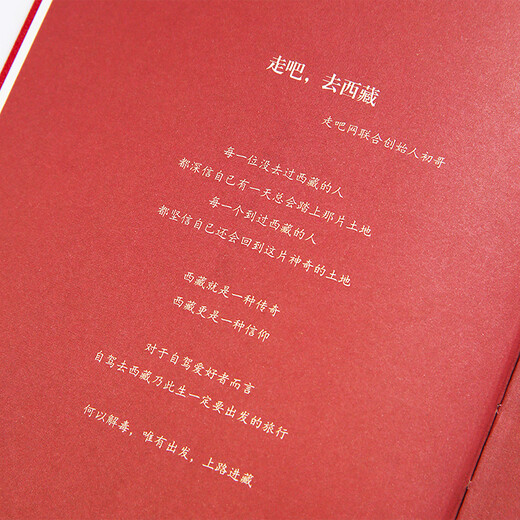 走吧，去西藏
走吧网联合创始人初哥
每一位没去过西藏的人
都深信自己有一天总会踏上那片土地
每一个到过西藏的人
都坚信自己还会回到这片神奇的土地
西藏就是一种传奇
西藏更是一种信仰
对于自驾爱好者而言
自驾去西藏乃此生一定要出发的旅行
何以解毒，唯有出发，上路进藏